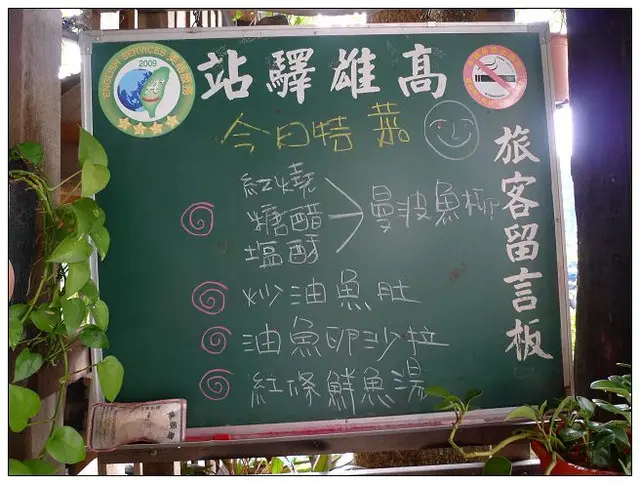 ENGLISH SERVICES 英語服務
2009
站驛雄高
今日特菜
旅客留言板
紅燒
糖醋
塩酥
曼波魚柳
炒油魚肚
油魚卵沙拉
紅條鮮魚湯